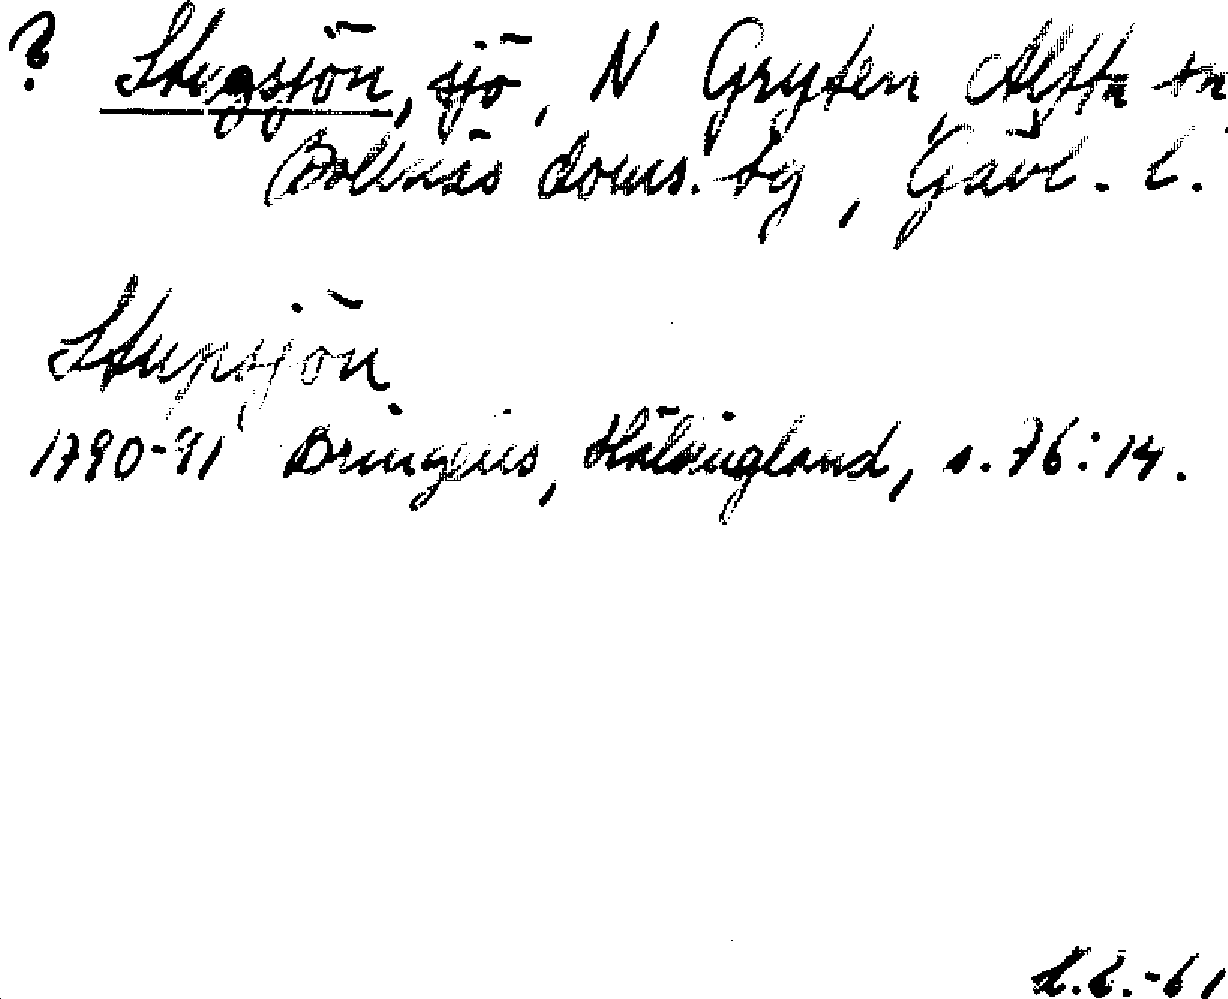 ? Stugsjön, sjö, N Gryten, Alfta sn
Bollnäs doms. tg, Gävl. l.
Stupsjön
1790-91 Bringéus, Hälsingland, s. 76:14.
-61